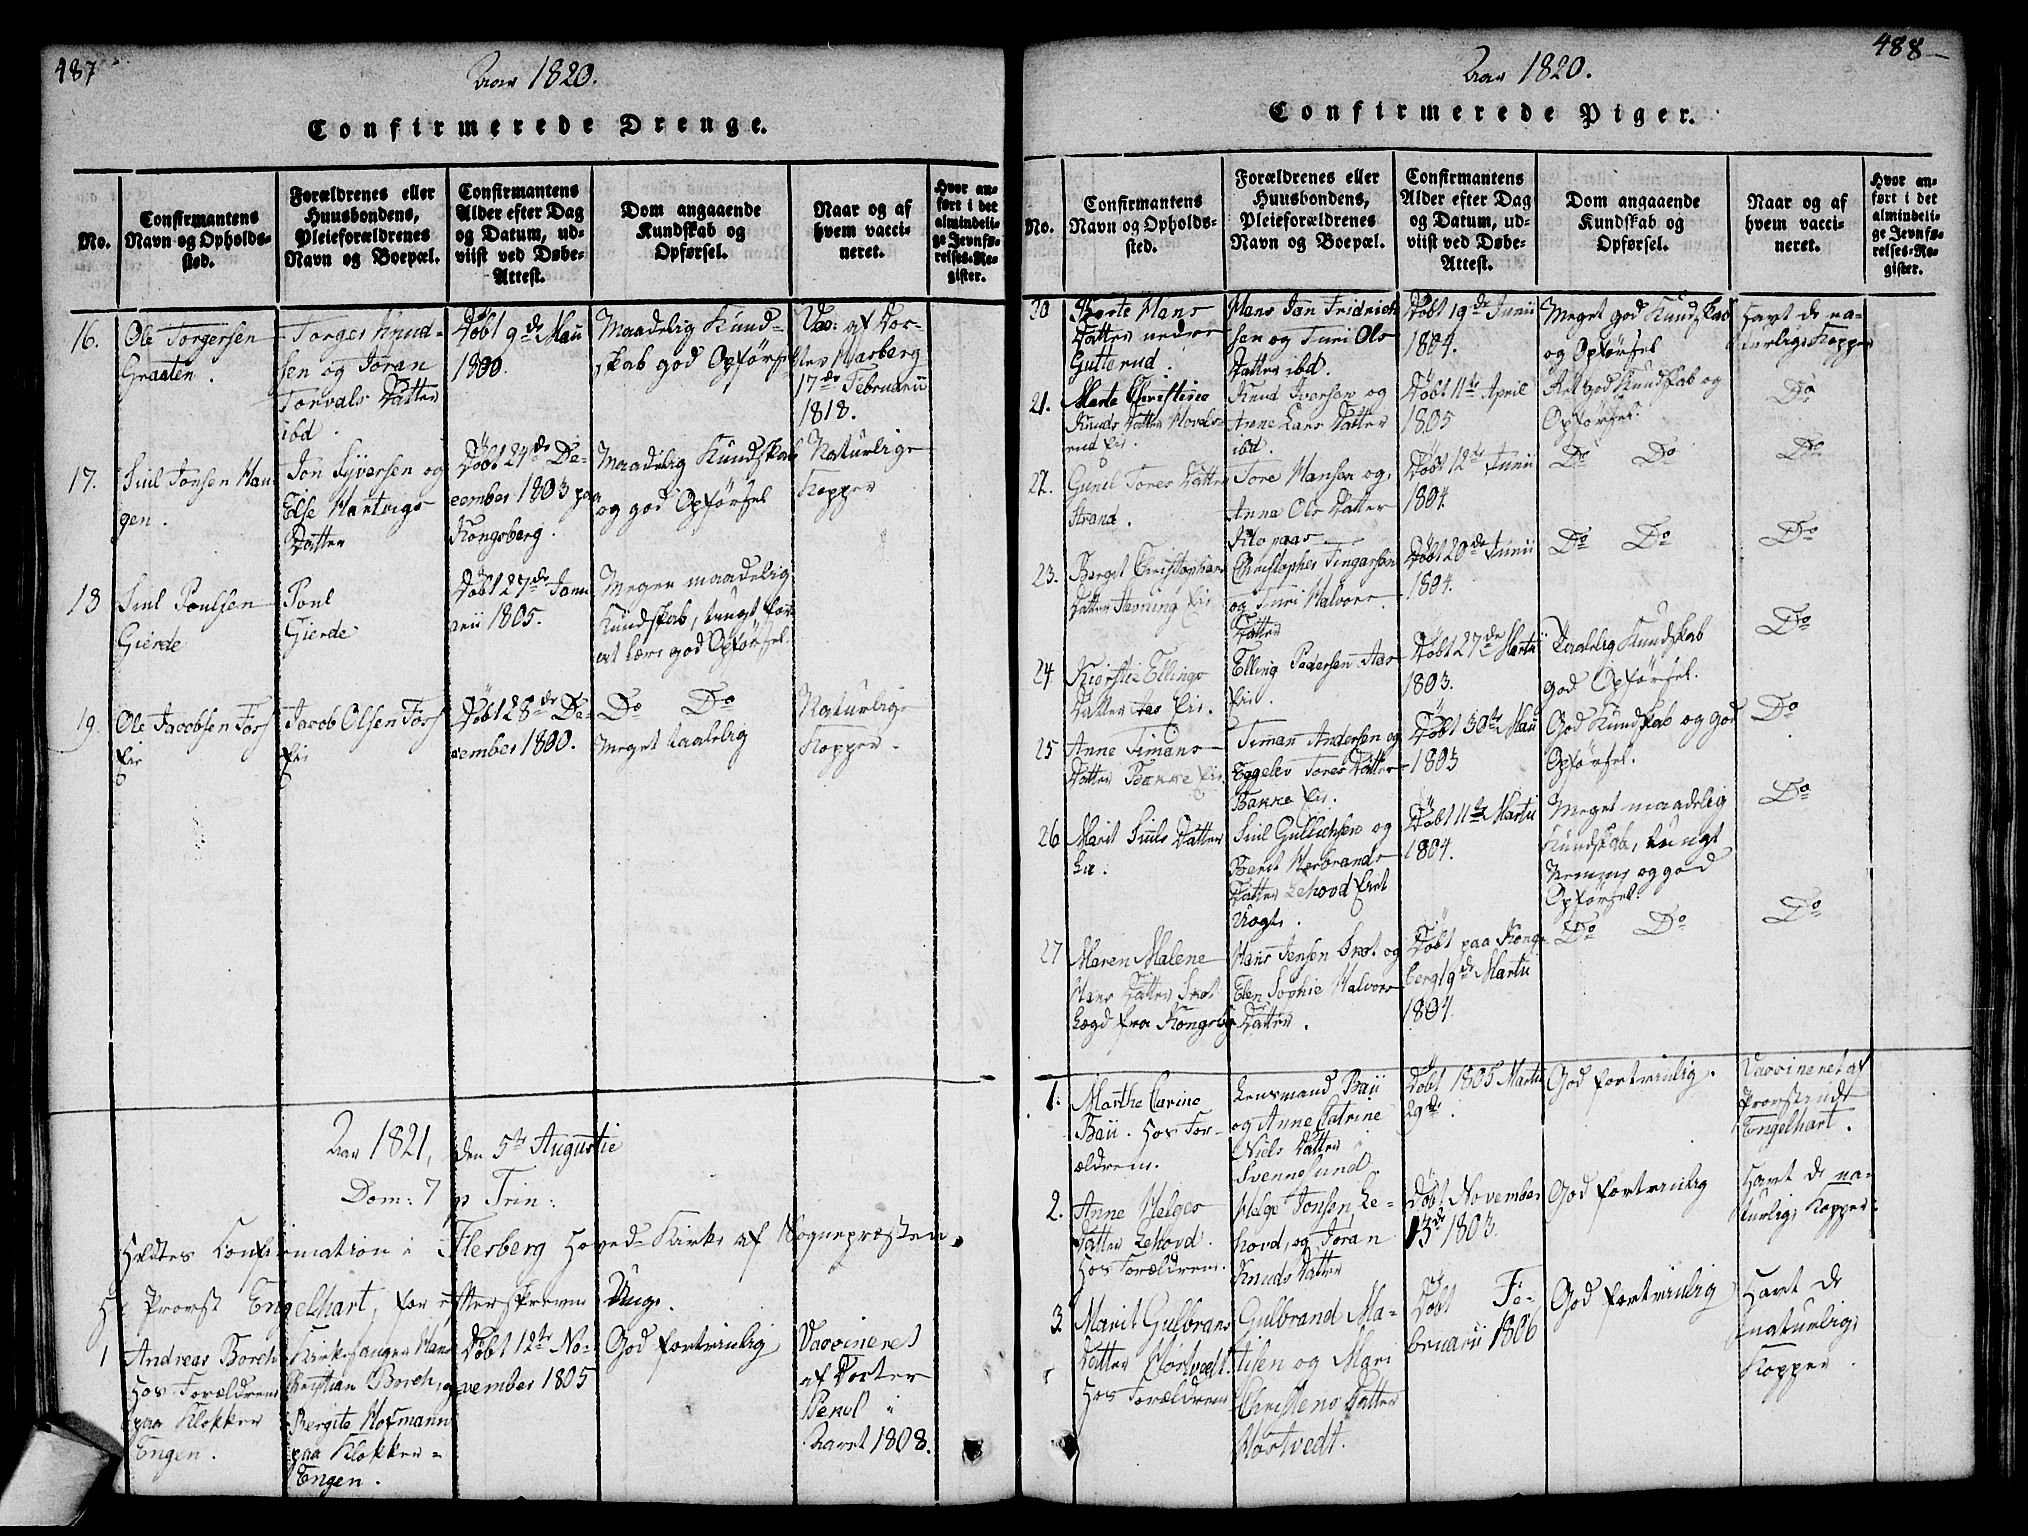 487
Aar 1820.
Confirmerede Drenge.
No.
Confirmantens
Navn og Opholds-
sted.
Forældrenes eller
Huusbondens,
Pleieforældrenes
Navn og Boepæl.
Confirmantens
Alder efter Dag
og Datum, ud-
viist ved Døbe-
Attest.
Dom angaaende
Kundskab og
Opførsel.
Naar og af
hvem vacci-
neret.
Hvor an-
ført i det
almindeli-
ge Jevnfø-
relses-Re-
gister.
16.
Ole Torgersen
Graaten.
Torger Knud-
sen og Jøran
Torvals Datter
ibd.
Døbt 9de Maii
1800.
Maadelig Kund-
skab god Opførsel
Vac: af Doc-
17de Februarii
1818.
17.
Siul Jonsen Hau
gen.
Jon Syversen og
Else Hartvigs
Datter
Døbt 24de De-
cember 1803 paa
Kongsberg.
Maadelig Kundskab
og god Opførsel
Naturlige
Kopper
18
Siul Poulsen
Gierde
Poul
Gierde
Døbt 27de Janu
arii 1805.
Megen maadelig
Kundskab, tungt for
at lære god Opførsel
19.
Ole Jacobsen Fors
eie
Jacob Olsen Fors
eie
Døbt 28de De-
cember 1800.
Do Do
Meget taalelig
Naturlige
Kopper.
Aar 1821, den 5te Augustie
Dom: 7 p Trin:
Holdtes Confirmation i Flesberg Hoved-Kirke af Sognepræsten,
Hr Provst Engelhart, for efterskrevne Unge.
1
Andreas Borch
Hos Forældrene
paa Klokker
Engen.
Kirkesanger Hans
Christian Borch, og
Bergite Hofmann
paa Klokker-
Engen.
Døbt 12te No-
vember 1805
God fortrinlig
Vaccineret
af Docter
Aaret 1808.
488
Aar 1820.
Confirmerede Piger.
No.
Confirmantens
Navn og Opholds-
sted.
Forældrenes eller
Huusbondens,
Pleieforældrenes
Navn og Boepæl.
Confirmantens
Alder efter Dag
og Datum, ud-
viist ved Døbe-
Attest.
Dom angaaende
Kundskab og
Opførsel.
Naar og af
hvem vacci-
neret.
Hvor an-
ført i det
almindeli-
ge Jevnfø-
relses-Re-
gister.
20.
Berte Hans
Datter nedre
Gutterud.
Hans Jan Fridrich
sen og Turi Ols
Datter ibd.
Døbt 19de Junii
1804.
Meget god Kundskab
og Opførsel
Havt de na-
turlige Kopper
21.
Marte Christine
Knuds Datter Hovels-
rud Eie.
Knud Iversen og
Anne Lars Datter
ibd.
Døbt 11te April
1805
Ret god Kundskab og
Opførsel.
Do
22.
Gunil Tores Datter
Strand.
Tore Hansen og
Anne Ols Datter
Døbt 12te Junii
1804.
Do Do
Do
23.
Berget Christopher
Datter Høvning Eie
Christopher Tingarsen
og Turi Halvors
Datter
Døbt 20de Junii
1804.
Do Do
Do
24
Kierstie Ellings
Datter Aas Eie.
Elling Pedersen Aas
Eie.
Døbt 27de Martii
1803.
Taalelig Kundskab
god Opførsel.
Do
25
Anne Timans
Datter Bakke Eie.
Timan Andersen og
Eggelev Tores Datter
Bakke Eie.
Døbt 30te Maii
1803
God Kundskab og god
Opførsel.
Do
26
Marit Siuls Datter
Lie.
Siul Gullichsen og
Berit Herbrands
Datter Lehovd Eiet
Døbt 11te Martii
1804.
Meget maadelig
Kundskab, tungt
Nemme og god
Opførsel.
Do
27
Maren Malene
Hans Datter Srot
Lægd fra Kongsbg
Hans Jensen Srot og
Elen Sophie Halvors
Datter.
Døbt paa Kongs-
berg 19de Martii
1804.
Do Do
Do
1.
Marthe Carine
Bau. Hos For-
ældrene.
Lensmand Bau
og Anne Catrine
Niels Datter
Svennesund
Døbt 1805 Martii
29de.
God fortrinlig.
Vaccineret af
Provstinde
Engelhart.
2.
Anne Helges
Datter Lehovd.
Hos Forældrene.
Helge Jonsen Le-
hovd, og Jøran
Knuds Datter
Døbt November
13de 1803.
God fortrinlig
Havt de na-
turlige Kopper.
3.
Marit Gulbrans
Datter Hostvedt.
Hos Forældrene
Gulbrand Ma-
tisen og Mari
Christens Datter
Hostvedt.
Døbt Fe-
bruarii 1806
God fortrinlig
Havt de
naturlige
Kopper.